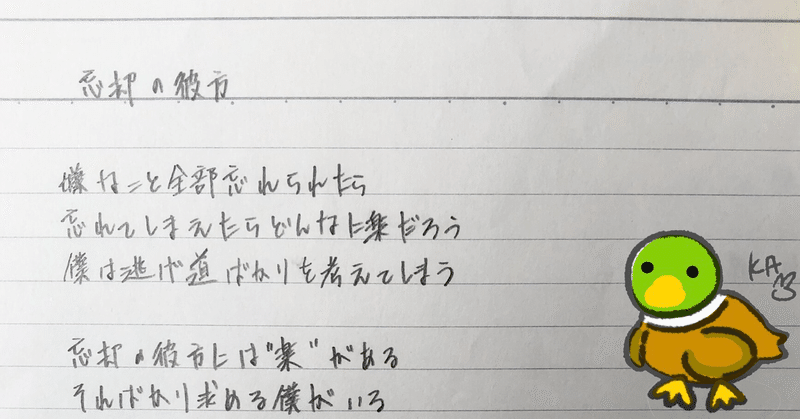 忘却の彼方
嫌なこと全部忘れられたら
忘れてしまえたらどんなに楽だろう
僕は逃げ道ばかりを考えてしまう
忘却の彼方には"楽"がある
そればかり求める僕がいる